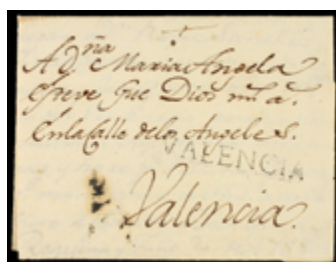 A Dña Maria Angela
Greve Gue Dios ml. a.
En la Calle delos Angeles.
VALENCIA
Valencia.